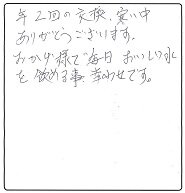 年2回の交換、寒い中
ありがとうございます。
おかげ様で毎日おいしい水
を飲める事、幸わせです。